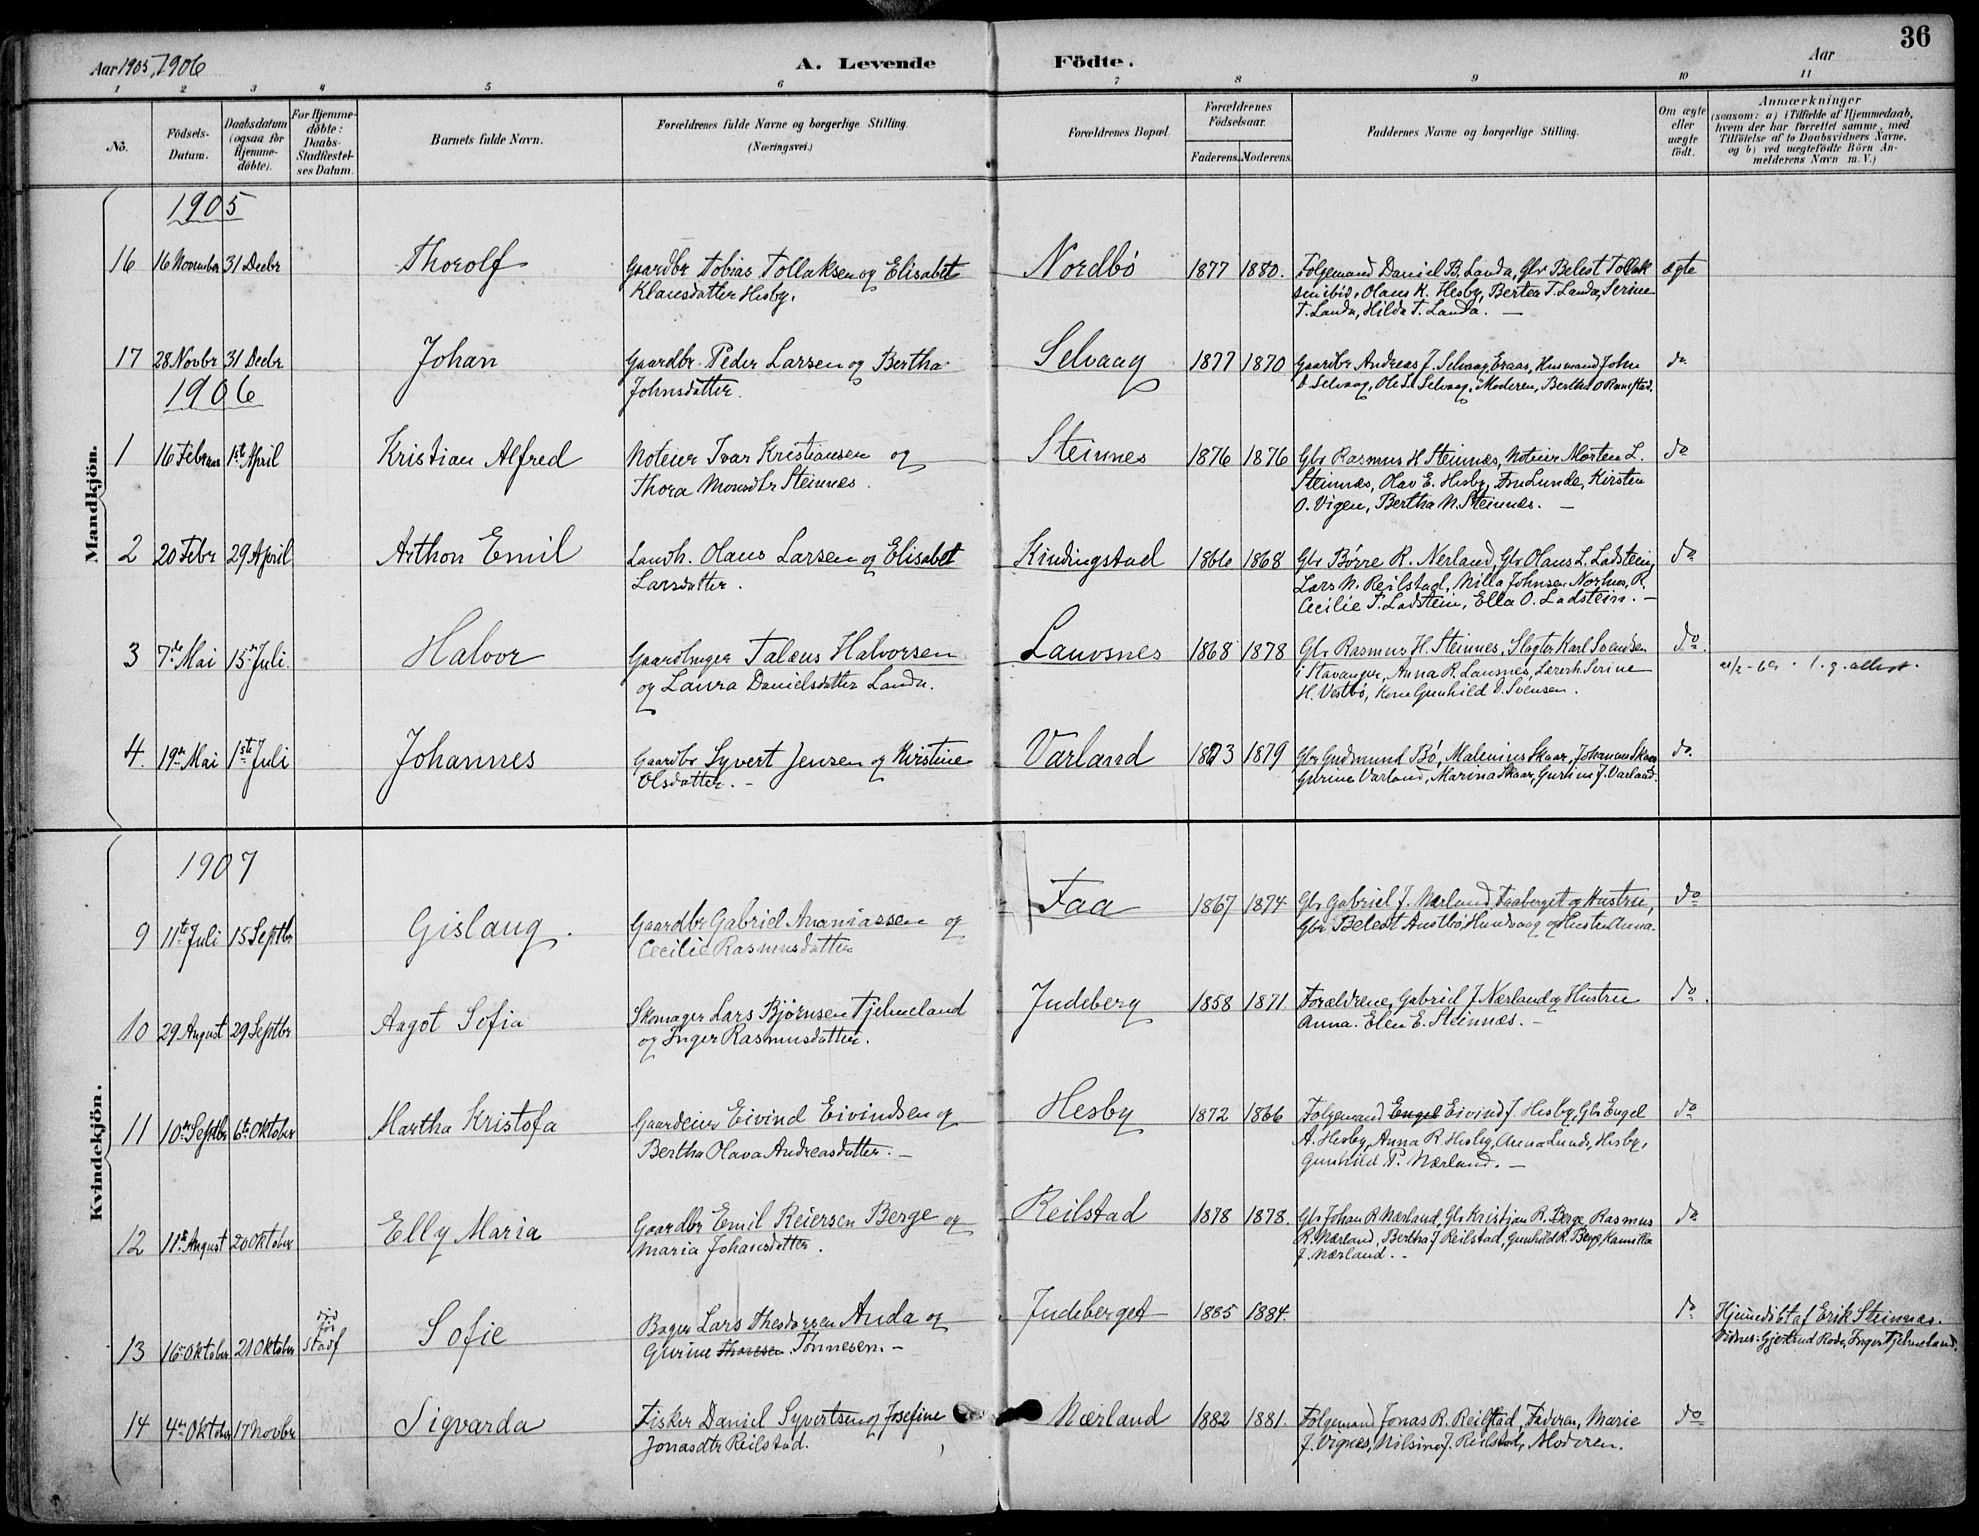 36
Aar 1905, 1906
A. Levende Födte.
Aar
1 2 3 4 5 6 7 8 9 10 11
No.
Födsels-Datum.
Daabsdatum (ogsaa for Hjemmedöbte).
For Hjemmedöbte: Daabs-Stadfæstelses Datum.
Barnets fulde Navn.
Forældrenes fulde Navne og borgerlige Stilling. (Næringsvei.)
Forældrenes Bopæl.
Forældrenes Födselsaar.
Faderens. Moderens.
Faddernes Navne og borgerlige Stilling.
Om ægte eller uægte födt.
Anmærkninger (saasom: a) i Tilfælde af Hjemmedaab, hvem der har forrettet samme, med Tilföielse af to Daabsvidners Navne, og b) ved uægtefödte Börn Anmelderens Navn m. V.)
Mandkjön.
1905
16 16 November 31 Decbr Thorolf Gaardbr Tobias Tollaksen og Elisabet Nordbö 1877 1880. Folgemand Daniel B. Landa, Gbr Belest Tollak ægte
Klausdatter Hesby. sen ibid, Olaus K. Hesby, Bertea T. Landa, Serine
T. Landa, Hilda T. Landa. —
17 28 Novbr 31 Decbr Johan Gaardbr. Peder Larsen og Bertha Selvaag 1877 1870 Gaardbr Andreas J. Selvaag, Husmand John do
Johnsdatter. O Selvaag, Ole L. Selvaag, Moderen, Bertha O Ramstad.
1906
1 16 Februar 1ste April Kristian Alfred Noteier Ivar Kristiansen og Steinnes 1876 1876 Gbr Rasmus H Steinnes, Noteier Morten L. do
Thora Monsdtr Steinnes. Steinnæs, Olav E. Hesby, Fru Lunde, Kirsten
O. Vigen, Bertha N. Steinnæs. —
2 20 Febr 29 April Arthon Emil Landh. Olaus Larsen og Elisabet Kindingstad 1866 1868 Gbr Börre R. Nerland, Gbr Olaus L. Ladstein, do
Larsdatter. Lars N. Reilstad, Nilla Johnsen
Cecilie T. Ladstein, Ella O. Ladstein. —
3 7de Mai 15de Juli. Halvor Gaardbruger Talæus Halvorsen Lauvsnes 1868 1878 Gbr Rasmus H. Steinnes, Slagter Karl Svendsen do.
og Laura Danielsdatter Landa. i Stavanger, Anna R. Lausnes, Lærerh. Serine
H. Vestbö, Kone Gunhild O. Svensen.
4. 19de Mai 1ste Juli Johannes Gaardbr Syvert Jensen og Kristine Varland 1873 1879 Gbr Gudmund Bö, Malenius Skaar, Johannes Skaar do.
Olsdatter. — Gurine Varland, Marina Skaar, Gurine J. Varland.
Kvindekjön.
1907
9 11te Juli 15 Septbr Gislaug. Gaardbr Gabriel Ananiassen og Faa 1867 1874 Gbr Gabriel J. Nærland, Faaberget og Hustru, do
Cecilie Rasmusdatter Gbr Belest Austbö, Hundvaag og Hustru Anna.
10 29 August 29 Septbr Aagot Sofia Skomager Lars Björnsen Tjelmeland Judeberg 1858 1871. Forældrene, Gabriel J Nærland og Hustru do.
og Inger Rasmusdatter. Anna. Elen E. Steinnæs. —
11 10de Septbr 6te Oktober Martha Kristofa Gaardeier Eivind Eivindsen og Hesby 1872 1866 Folgemand Engel Eivind J. Hesby, Gbr Engel do
Bertha Olava Andreasdatter. — A. Hesby, Anna R Hesby, Anna Lunde, Hesby,
Gunhild P. Nærland. —
12 11te August 20 Oktober Elly Maria Gaardbr Emil Reiersen Berge og Reilstad 1878 1878. Gbr Johan R. Nærland, Gbr Kristian R. Berge, Rasmus do
Maria Johansdatter. R. Nærland, Bertha J Reilstad, Gunhild R. Berge, Kamilla
J. Nærland. —
13 16de Oktober 21 Oktober död för Stadf Sofie Bager Lars Theodorsen Anda og Judeberget 1885 1884. do Hjemedöbt af Erik Steinnæs.
Gurine Thoresen Tönnesen. — Vidner: Gjertrud Roda, Inger Tjelmeland.
14 4de Oktober 17 Novbr Sigvarda Fisker Daniel Syvertsen og Josefine Nærland 1882 1881. Folgemand Jonas R. Reilstad, Faderen, Marie do
Jonasdtr Reilstad. J. Vignes, Nilsine J. Reilstad, Moderen.